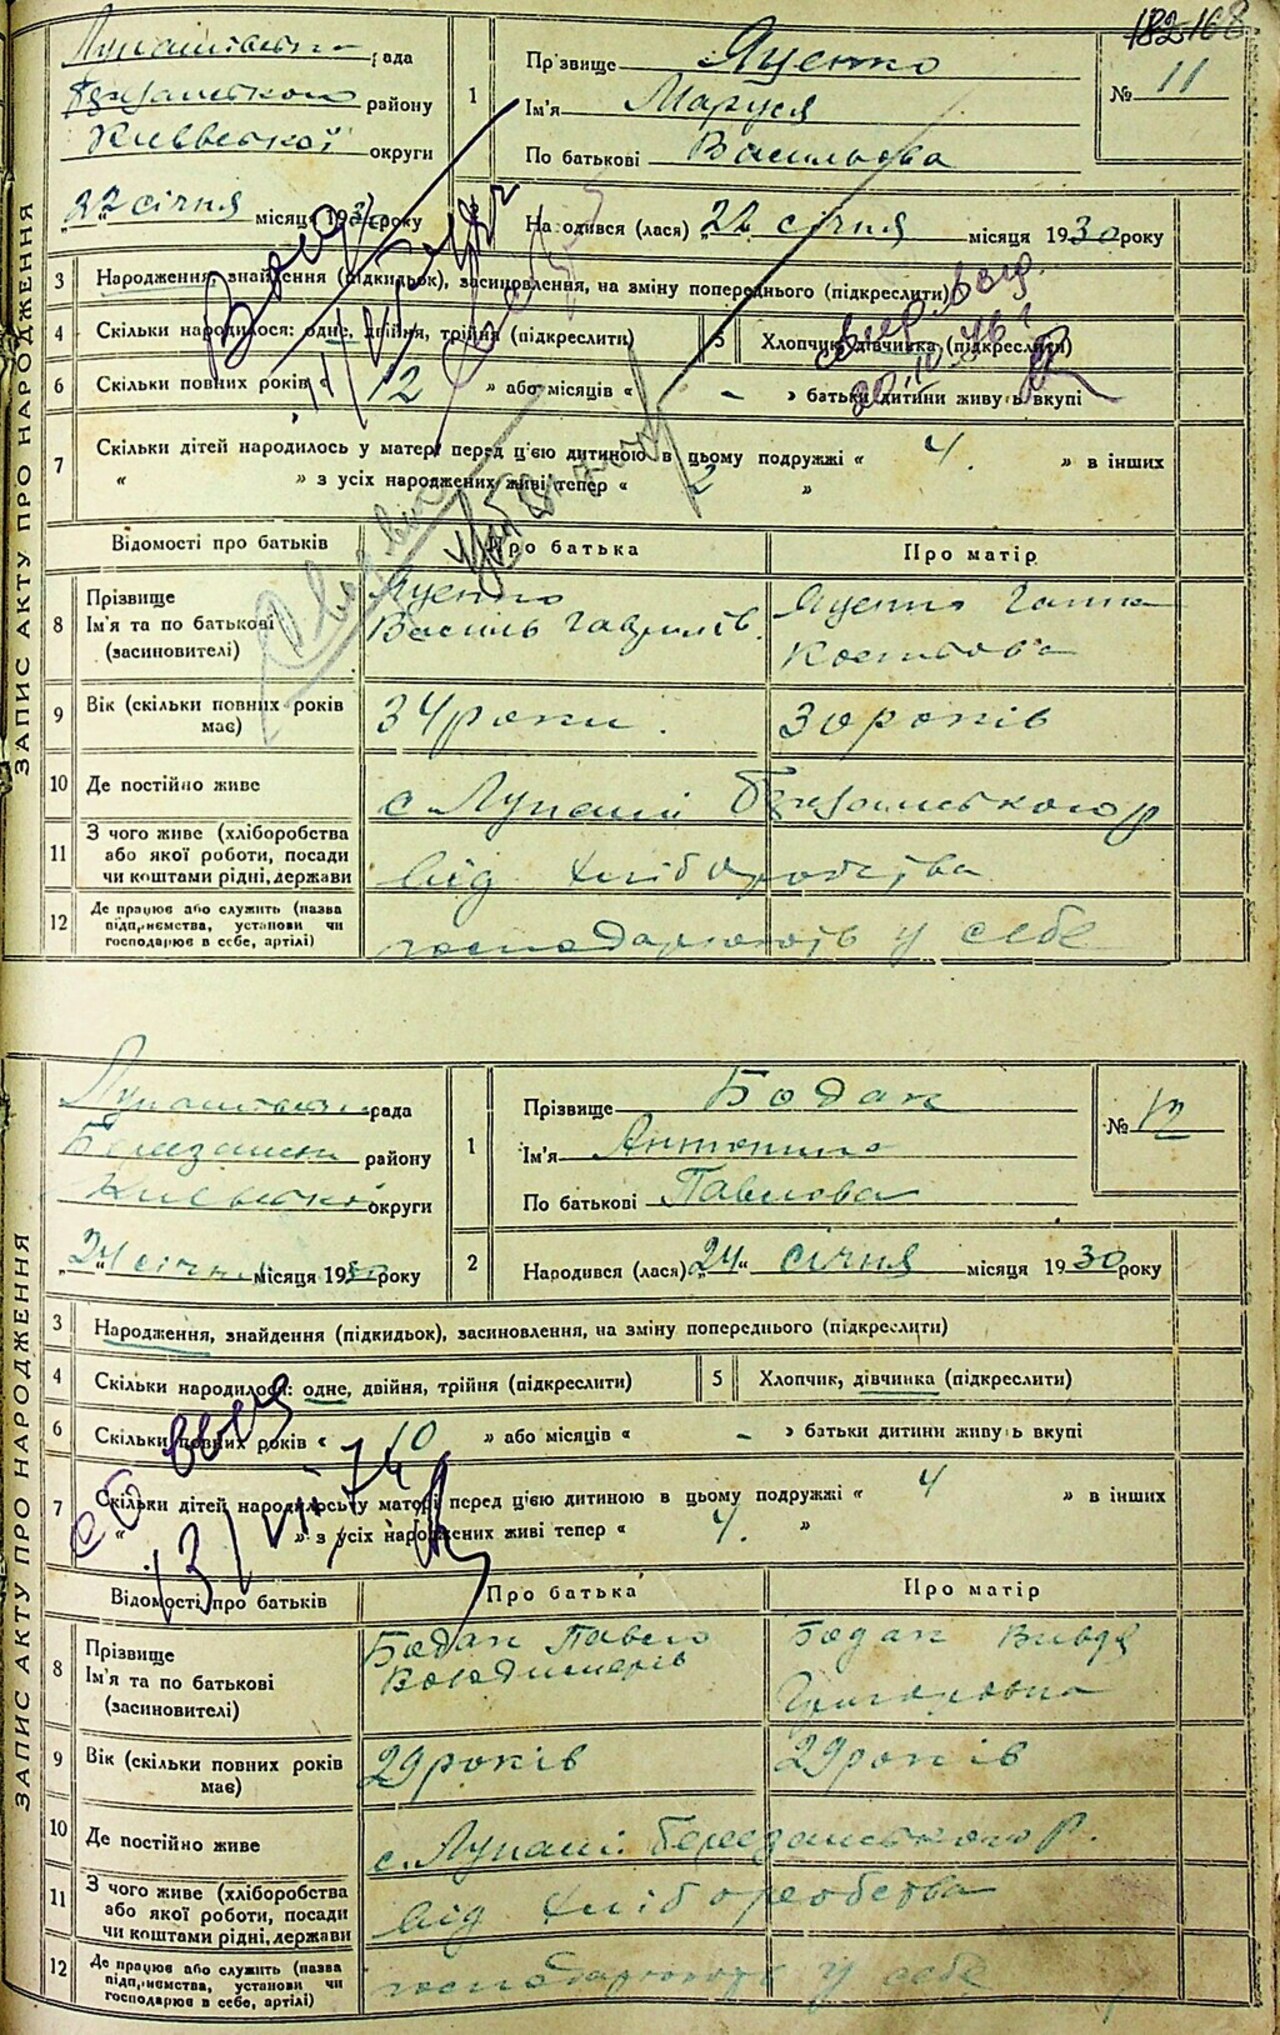 182 168
ЗАПИС АКТУ ПРО НАРОДЖЕННЯ
рада
району
Київської округи
22 січня місяця 1930 року
1
Прізвище Яценко
Ім'я Маруся
По батькові Васильова
№ 11
Народився (лася) 22 січня місяця 1930 року
3 Народження, знайдення (підкидьок), засиновлення, на зміну попереднього (підкреслити)
4 Скільки народилося: одне, двійня, трійня (підкреслити) 5 Хлопчик, дівчинка (підкреслити)
6 Скільки повних років « 12 » або місяців « - » батьки дитини живуть вкупі
7 Скільки дітей народилось у матері перед цією дитиною в цьому подружжі « 4. » в інших
« » з усіх народжених живі тепер « 2 »
Відомості про батьків Про батька Про матір
8 Прізвище
Ім'я та по батькові
(засиновителі)
Яценко
Василь Гаврилів.
Яценко Ганна
9 Вік (скільки повних років має) 34 роки. 30 років
10 Де постійно живе с. Лупаші
11 З чого живе (хліборобства
або якої роботи, посади
чи коштами рідні, держави
від хліборобства
12 Де працює або служить (назва
підприємства, установи чи
господарює в себе, артілі)
господарюють у себе
ЗАПИС АКТУ ПРО НАРОДЖЕННЯ
рада
району
Київської округи
24 січня місяця 1930 року
1
Прізвище Бодак
Ім'я Антонина
По батькові Павлова
№ 12
2 Народився (лася) 24 січня місяця 1930 року
3 Народження, знайдення (підкидьок), засиновлення, на зміну попереднього (підкреслити)
4 Скільки народилося: одне, двійня, трійня (підкреслити) 5 Хлопчик, дівчинка (підкреслити)
6 Скільки повних років « 10 » або місяців « - » батьки дитини живуть вкупі
7 Скільки дітей народилось у матері перед цією дитиною в цьому подружжі « 4 » в інших
« » з усіх народжених живі тепер « 4. »
13/VII-74
Відомості про батьків Про батька Про матір
8 Прізвище
Ім'я та по батькові
(засиновителі)
Бодак Павло
Володимирів
Бодак Вивдя
Григоровна
9 Вік (скільки повних років має) 29 років 29 років
10 Де постійно живе с. Лупаші. Березанського р.
11 З чого живе (хліборобства
або якої роботи, посади
чи коштами рідні, держави
від хліборобства
12 Де працює або служить (назва
підприємства, установи чи
господарює в себе, артілі)
господарюють у себе